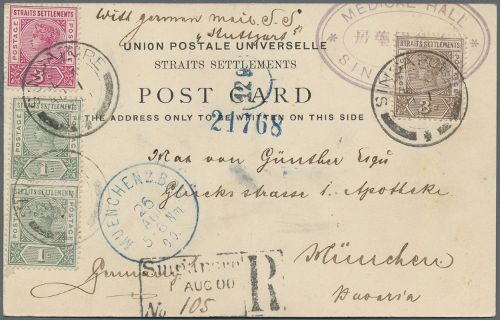 With german mail S. S.
"Stuttgart"
MEDICAL HALL
STRAITS SETTLEMENTS
POSTAGE
3
SINGAPORE
UNION POSTALE UNIVERSELLE
STRAITS SETTLEMENTS
POST CARD
THE ADDRESS ONLY TO BE WRITTEN ON THIS SIDE
SINGAPORE
3
21768
STRAITS SETTLEMENTS
POSTAGE
1
STRAITS SETTLEMENTS
POSTAGE
1
Max von Günther Esqu
Glücksstrasse 1. Apotheke
MUENCHEN 2.B.
26
AUG
5-6 Nm
00.
München
Bavaria
Germany
Singapore
AUG 00
No 105
R